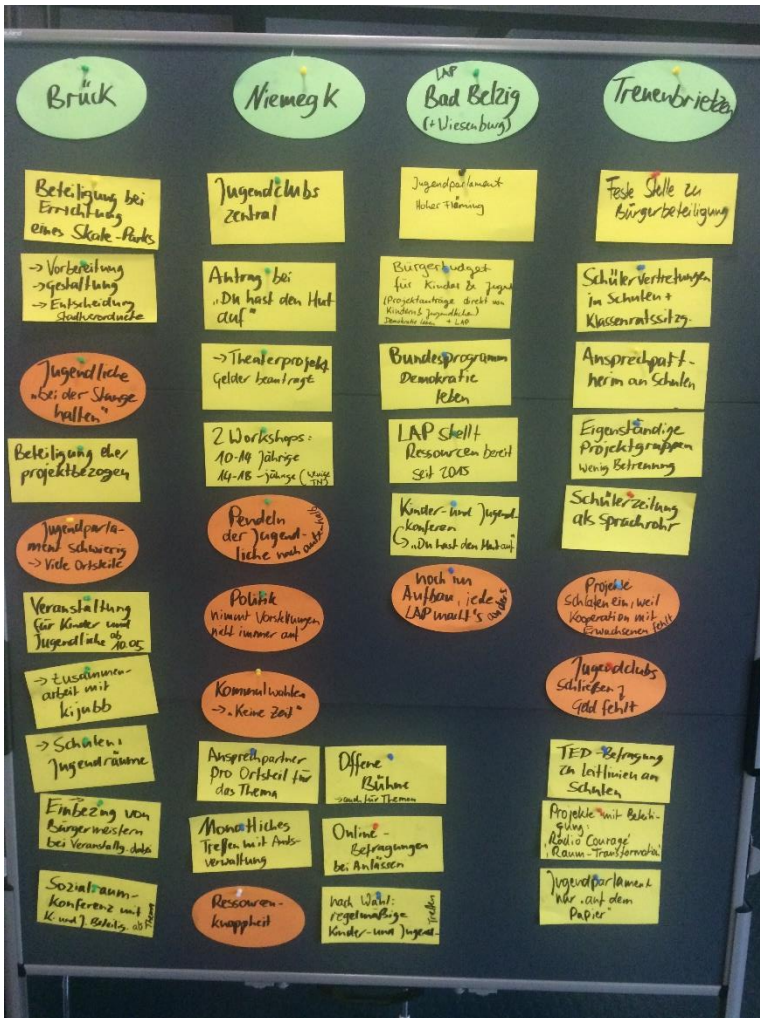 Brück
Beteiligung bei
Errichtung
eines Skate-Parks
→ Vorbereitung
→ Gestaltung
→ Entscheidung
Stadtverordnete
Jugendliche
"bei der Stange
halten"
Beteiligung eher
projektbezogen
Jugendparla-
ment schwierig
→ Viele Ortsteile
Veranstaltung
für Kinder und
Jugendliche ab
10.05
→ Zusammen-
arbeit mit
kijubb
→ Schulen,
Jugendräume
Einbezug von
Bürgermeistern
bei Veranstaltg.
Sozialraum-
konferenz mit
K. und J. Beteilig. ab
Niemegk
Jugendclubs
zentral
Antrag bei
"Du hast den Hut
auf"
→ Theaterprojekt
Gelder beantragt
2 Workshops:
10-14 Jährige
14-18-jährige (wenige
TN)
Pendeln
der Jugend-
liche nach außerhalb
Politik
nimmt Vorstellungen
nicht immer auf
Kommunalwahlen
→ "Keine Zeit"
Ansprechpartner
pro Ortsteil für
das Thema
Monatliches
Treffen mit Amts-
verwaltung
Ressourcen-
knappheit
Offene
Bühne
→ auch für Themen
Online-
Befragungen
bei Anlässen
nach Wahl:
regelmäßige
Kinder- und Jugend-
Treffen
LAP
Bad Belzig
(+ Wiesenburg)
Jugendparlament
Hoher Fläming
Bürgerbudget
für Kinder & Jugend
(Projektanträge direkt von
Kindern & Jugendlichen)
Demokratie leben + LAP
Bundesprogramm
Demokratie
leben
LAP stellt
Ressourcen bereit
seit 2015
Kinder- und Jugend
konferenz
→ "Du hast den Hut auf"
noch im
Aufbau, jede
LAP macht's anders
Treuenbrietzen
Feste Stelle zu
Bürgerbeteiligung
Schülervertretungen
in Schulen +
Klassenratssitzg.
Ansprechpart-
nerin an Schulen
Eigenständige
Projektgruppen
wenig Betreuung
Schülerzeitung
als Sprachrohr
Projekte
schlafen ein, weil
Kooperation mit
Erwachsenen fehlt
Jugendclubs
schließen,
Geld fehlt
TED-Befragung
zu Leitlinien an
Schulen
Projekte mit Beteili-
gung:
"Radio Courage"
"Raum-Transformation"
Jugendparlament
nur "auf dem
Papier"